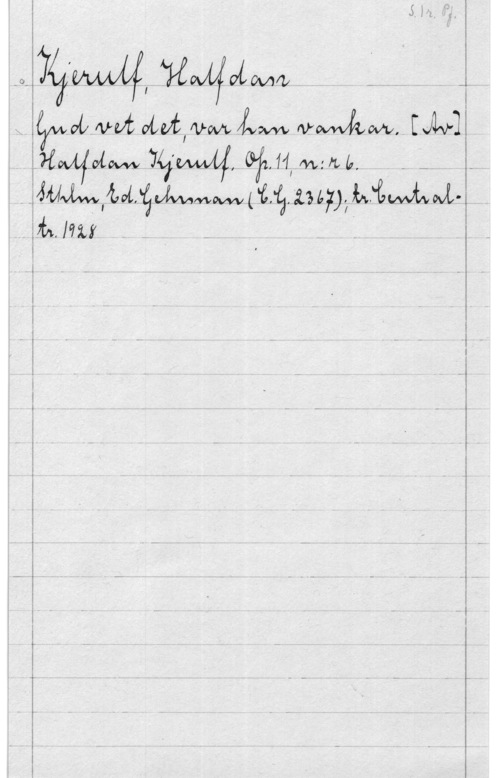 S. 1 r. Pf.
Kjerulf, Halfdan
Gud vet det, var han vankar. [Av]
Halfdan Kjerulf. Op. 11, n:r 6.
Sthlm, Ed. Gehrman (C.G. 2367); tr. Central-
tr. 1928